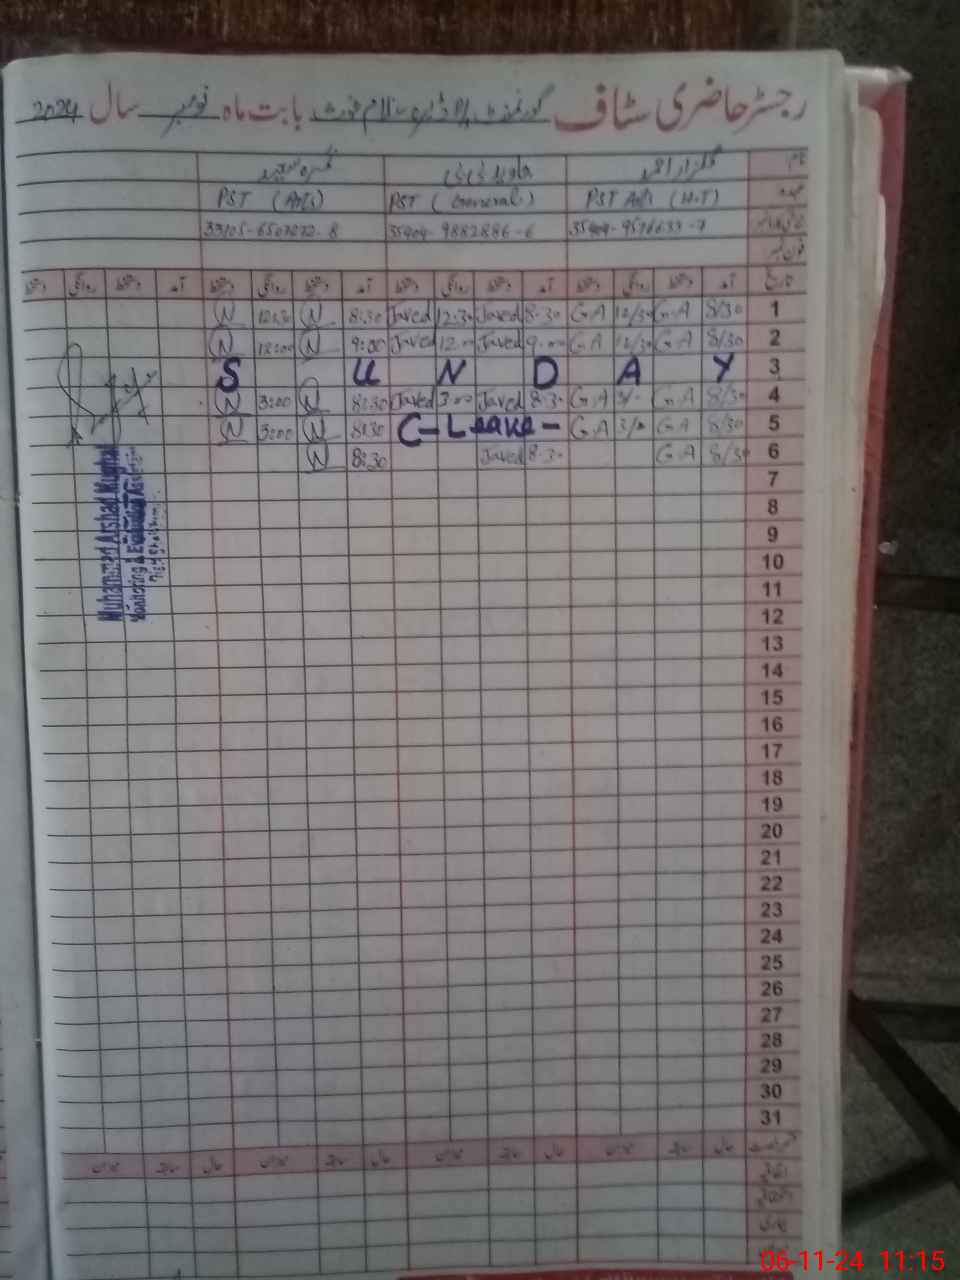 رجسٹر حاضری سٹاف گورنمنٹ بابت ماہ نومبر سال 2024
نام گلزار احمد
عہدہ PST Arts (H.T) PST (General) PST (Arts)
35404-9576633-7 35404-9882886-6 33105-6507272-8
فون نمبر
تاریخ آمد دستخط روانگی دستخط آمد دستخط روانگی دستخط آمد دستخط روانگی دستخط آمد دستخط روانگی دستخط
1 8/30 G.A 12/30 G.A 8.30 Javed 12.30 Javed 8:30 N 12:30 N
2 8/30 G.A 12/30 G.A 9.00 Javed 12.00 Javed 9:00 N 12:00 N
3 S U N D A Y
4 8/30 G.A 3/- G.A 8.30 Javed 3.00 Javed 8:30 N 3:00 N
5 8/30 G.A G.A C-Leave- 8:30 N 3:00 N
6 8/30 G.A 8.30 Javed 8:30 N
7
8
9
10
11
12
13
14
15
16
17
18
19
20
21
22
23
24
25
26
27
28
29
30
31
Muhammad Arshad Mughal
Monitoring & Evaluation Assistant
حال سابقہ میزان حال سابقہ میزان حال سابقہ میزان حال سابقہ میزان
06-11-24 11:15